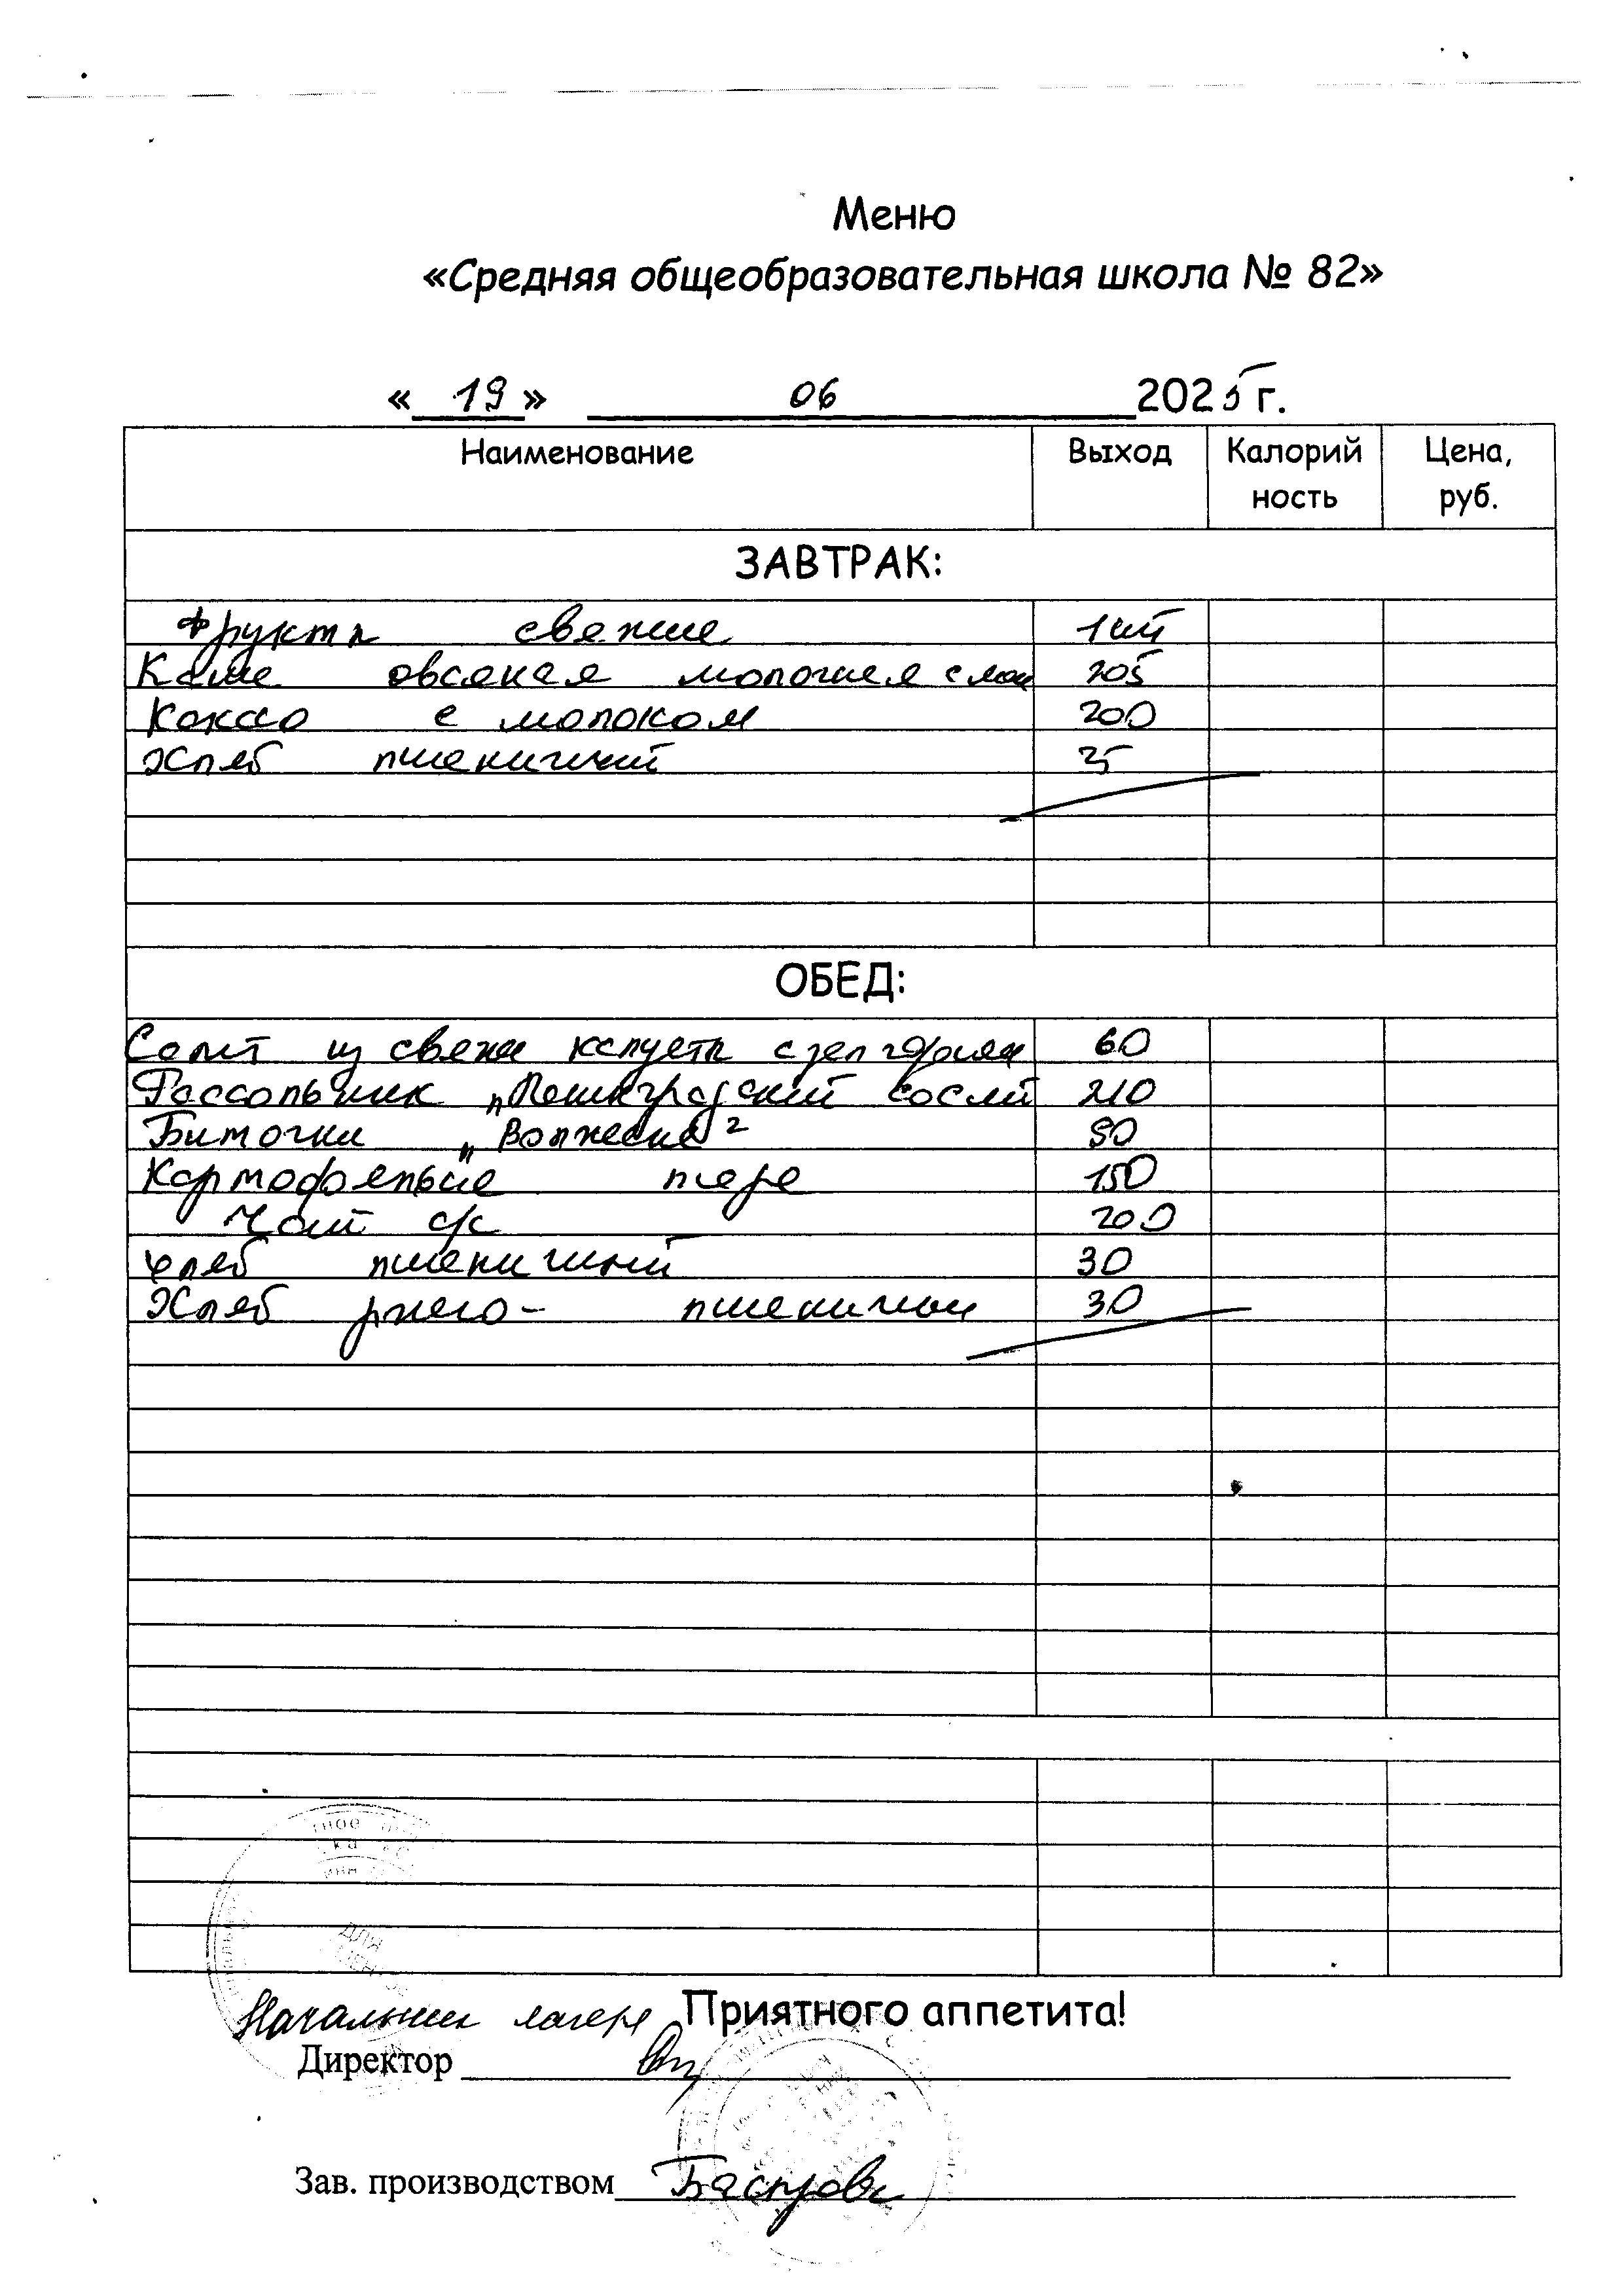 Меню
«Средняя общеобразовательная школа № 82»
« 19 » 06 2025 г.
Наименование Выход Калорий Цена,
ность руб.
ЗАВТРАК:
Фрукты свежие 1 шт
Каша овсяная молочная с мас 205
Какао с молоком 200
Хлеб пшеничный
ОБЕД:
Салат из свежи капусты с зел горошк 60
Рассольник „Ленинградский со см 210
Биточки „Волжские"
Картофельное пюре 150
Чай с/с 200
Хлеб пшеничный 30
Хлеб ржано- пшеничный 30
Начальник лагеря Приятного аппетита!
Директор
Зав. производством